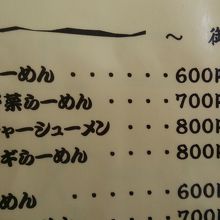 ～ 御
らーめん ・・・・・ 600円
菜らーめん ・・・・ 700円
ャーシューメン ・・・ 800円
ギらーめん ・・・・ 800円
めん ・・・・・ 600
700